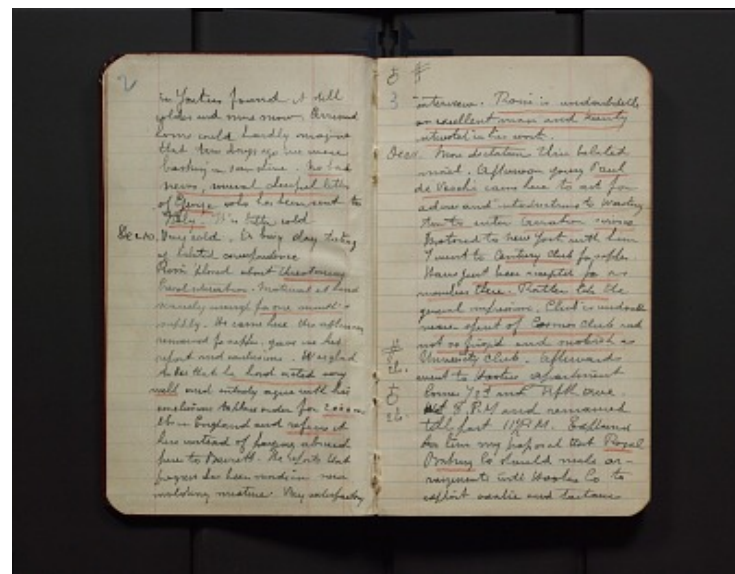 2
in Yonkers found it still
colder and more snow. Arrived
home could hardly imagine
that two days ago we were
basking in sunshine. No bad
news, usual cheerful letter
of George who has been sent to
It is bitter cold
Dec 10. Very cold. A busy day
of belated correspondence
Rossi phoned about threatening
. Material at hand
scarcely enough for one month's
supply. He came here this afternoon
remained for supper. gave me his
report and conclusions. Was glad
to see that he had acted very
well and entirely agree with his
conclusions to place order for
lbs in England and refine it
here instead of
here to . He reports that
progress has been made in new
molding mixture. Very satisfactory
3
interview. Rossi is undoubtedly
an excellent man and
interested in his work.
Dec 11. More dictation thru belated
mail. Afternoon young Paul
de came here to ask for
advice and introductions to Washing-
ton to enter service
Motored to New York with him
I went to Century Club for supper.
Have just been accepted for
member there. Rather like the
general impression. Club is undoubtedly
nearer spirit of Cosmos Club and
not so frigid and snobbish as
University Club. Afterwards
went to apartment
Corner 73d and Fifth Ave.
at 8 P.M and remained
till past 11 P.M. Explained
to him my proposal that Royal
Co should make ar-
rangements with Co to
exploit and